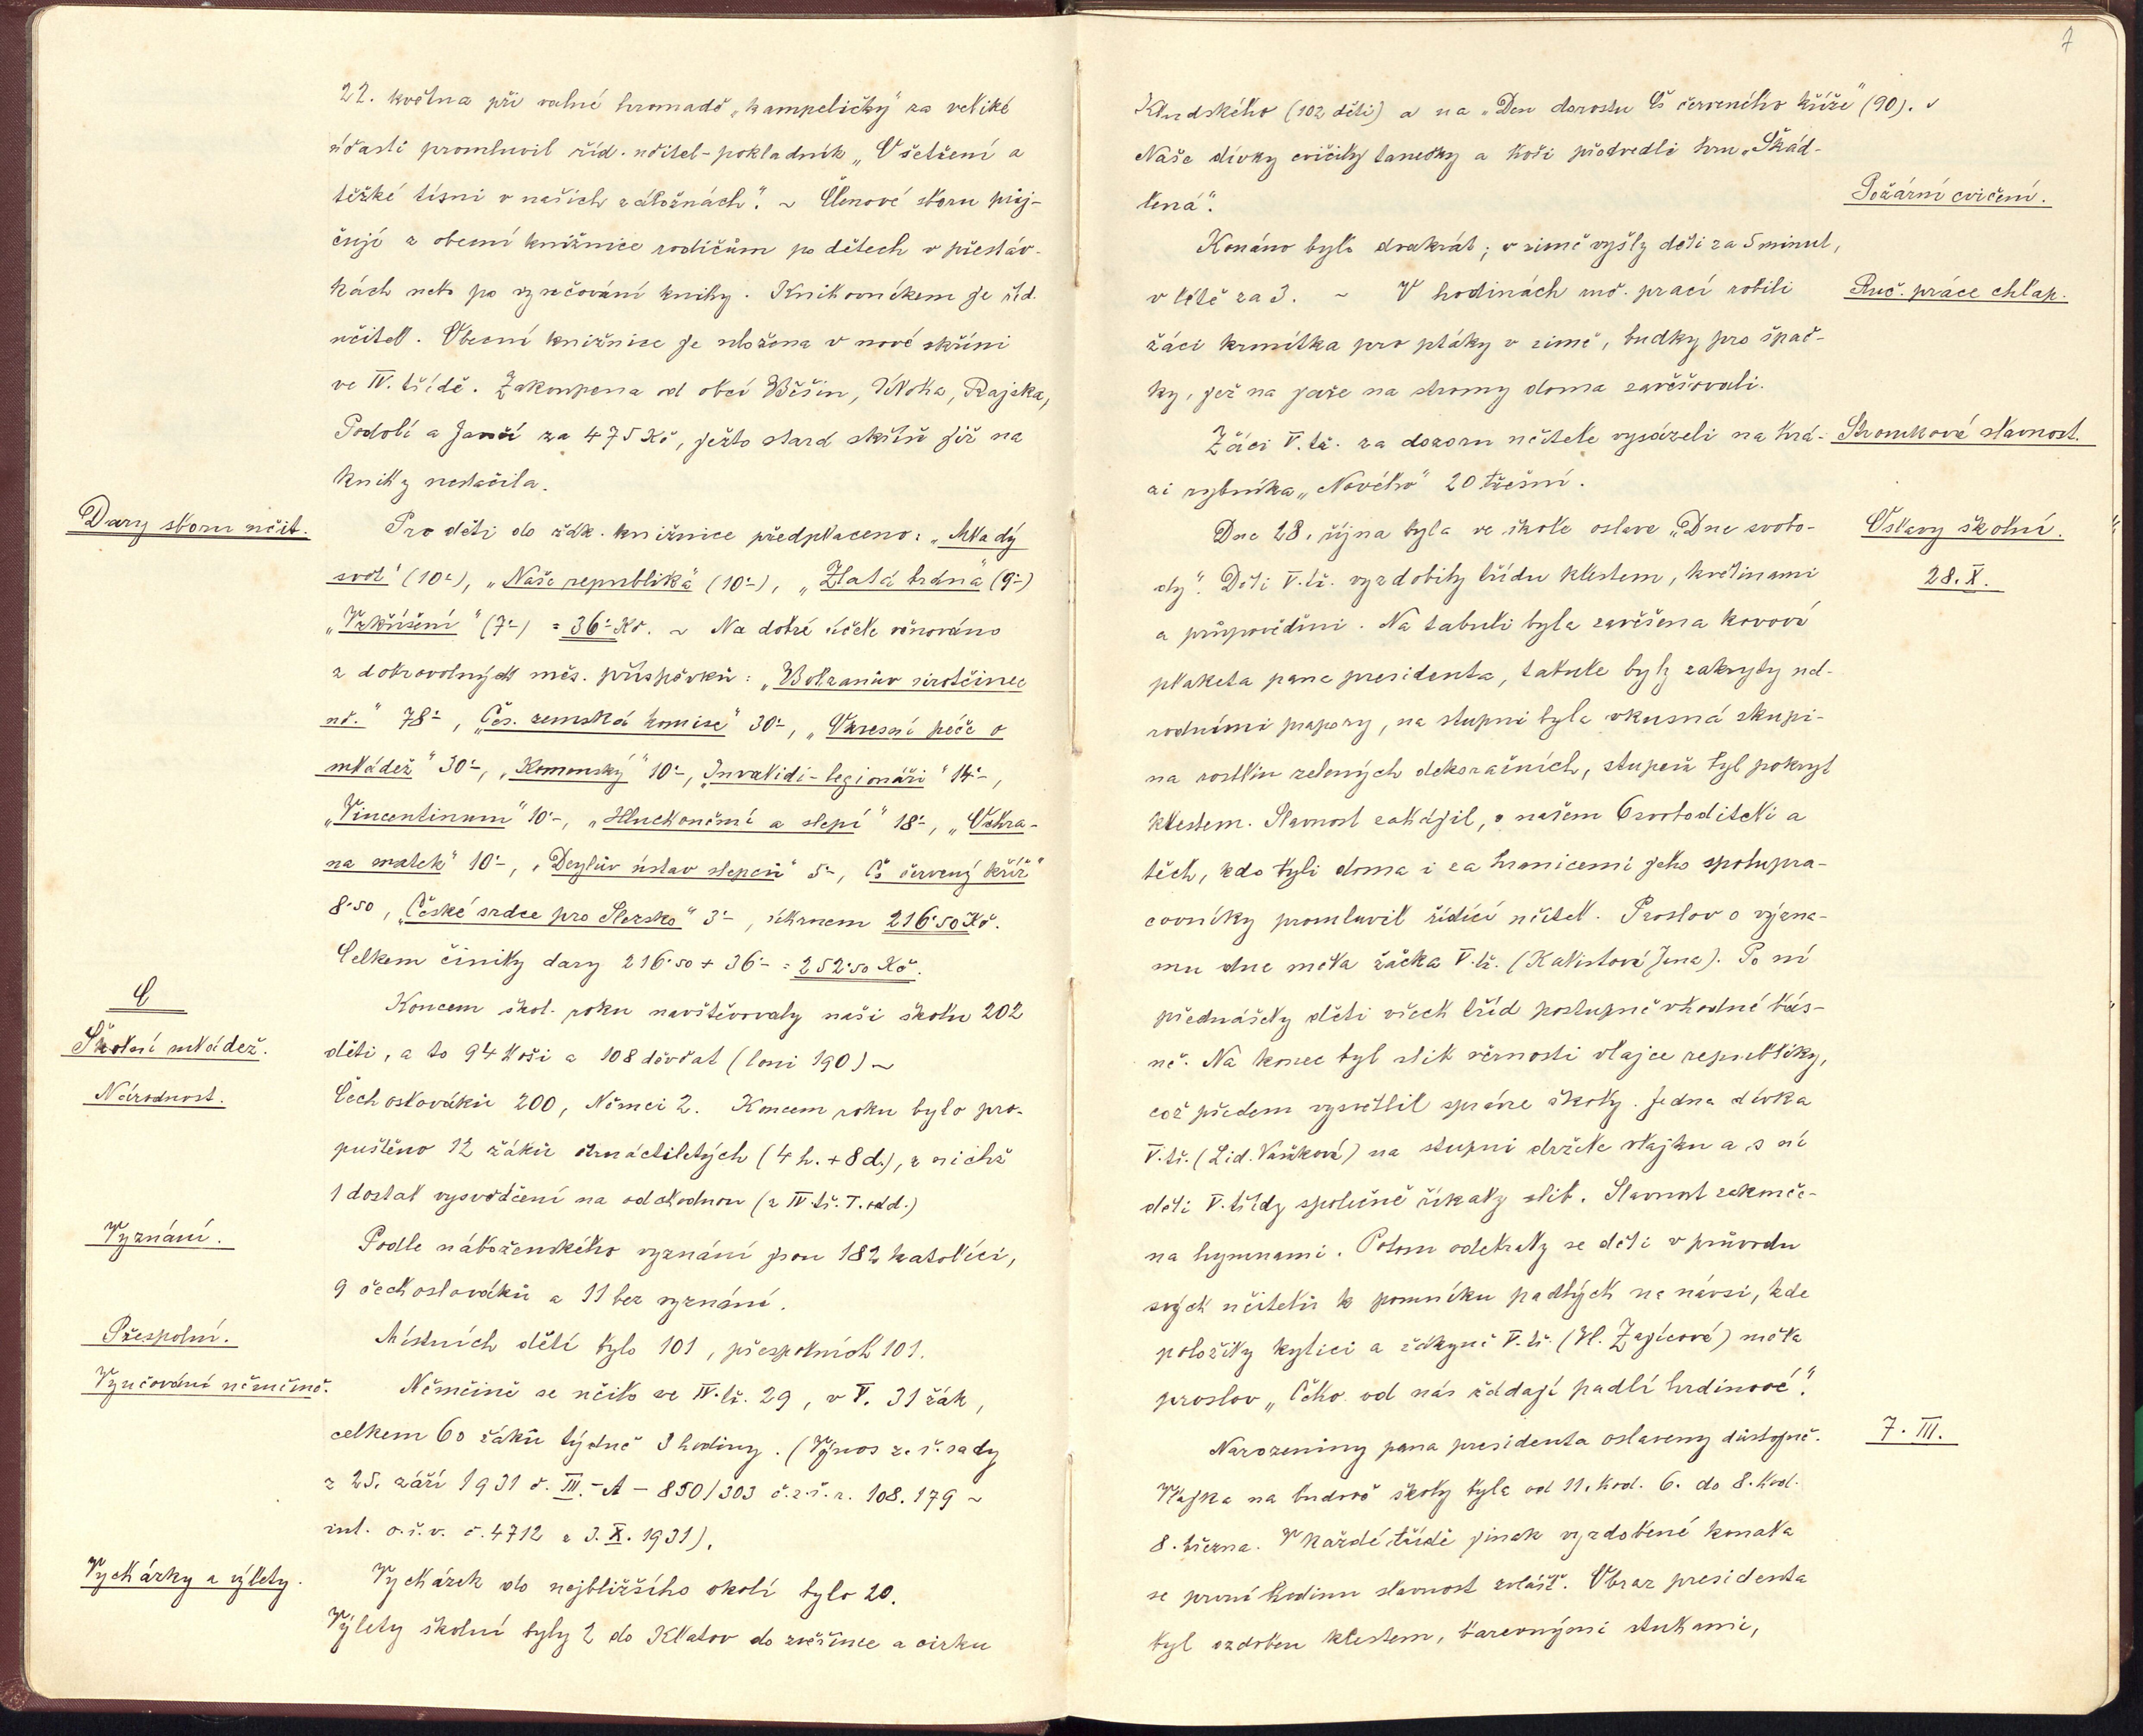 22. května při valné hromadě „kampeličky" za veliké
účasti promluvil říd. učitel-pokladník „O šetření a
těžké tísni v našich záložnách". ~ Členové sboru půj-
čují z obecní knižnice rodičům po dětech v přestáv-
kách nebo po vyučování knihy. Knihovníkem je říd.
učitel. Obecní knižnice je uložena v nové skříni
ve IV. třídě. Zakoupena od obcí Běšin, Úloha, Rajska,
Podolí a Jančí za 475 Kč, ježto stará skříň již na
knihy nestačila.
Dary sboru učit.
Pro děti do žák. knižnice předplaceno: „Mladý
svět" (10·-), „Naše republika" (10·-), „Zlatá brána" (9·-)
„Vzkříšení" (7·-) = 36·- Kč. ~ Na dobré účele věnováno
z dobrovolných měs. příspěvků: „Bolzanův sirotčinec
uč." 78·-, „Čes. zemská komise" 30·-, „Okresní péče o
mládež" 30·-, „Komenský" 10·-, „Invalidi-legionáři" 14·-,
„Vincentinum" 10·-, „Hluchoněmí a slepí" 18·-, „Ochra-
na matek" 10·-, „Deylův ústav slepců" 5·-, Čs červený kříž"
8·50, „České srdce pro Slezsko" 3·-, úhrnem 216·50 Kč.
Celkem činily dary 216·50 + 36·- = 252·50 Kč.
C
Školní mládež.
Koncem škol. roku navštěvovaly naši školu 202
děti, a to 94 hoši a 108 děvčat (loni 190) ~
Národnost.
Čechoslováků 200, Němci 2. Koncem roku bylo pro-
puštěno 12 žáků čtrnáctiletých (4 h. + 8 d.), z nichž
1 dostal vysvědčení na odchodnou (z IV. tř. I. odd.)
Vyznání.
Podle náboženského vyznání jsou 182 katolíci,
9 čechoslováků a 11 bez vyznání.
Přespolní.
Místních dětí bylo 101, přespolních 101.
Vyučování němčině.
Němčině se učilo ve IV. tř. 29, v V. 31 žák,
celkem 60 žáků týdně 3 hodiny. (Výnos z. š. rady
z 25. září 1931 č. III.-A - 850/303 č.z.š.r. 108.179 ~
int. o.š.v. č. 4712 z 3. X. 1931).
Vycházky a výlety.
Vycházek do nejbližšího okolí bylo 20.
Výlety školní byly 2 do Klatov do zvěřince a cirku
7
Kludského (102 děti) a na „Den dorostu čs červeného kříže" (90). v
Naše dívky cvičily tanečky a hoši předvedli hru „Skád-
lená".
Požární cvičení.
Konáno bylo dvakrát; v zimě vyšly děti za 5 minut,
v létě za 3. ~ V hodinách ruč. prací robili
Ruč. práce chlap.
žáci krmítka pro ptáky v zimě, budky pro špač-
ky, jež na jaře na stromy doma zavěšovali.
Stromková slavnost.
Žáci V. tř. za dozoru učitele vysázeli na hrá-
zi rybníka „Nového" 20 třešní.
Oslavy školní.
28. X.
Dne 28. října byla ve škole oslava „Dne svobo-
dy". Děti V. tř. vyzdobily třídu klestem, květinami
a průpověďmi. Na tabuli byla zavěšena kovová
plaketa pana presidenta, tabule byly zakryty ná-
rodními prapory, na stupni byla vkusná skupi-
na rostlin zelených dekoračních, stupeň byl pokryt
klestem. Slavnost zahájil, o našem Osvoboditeli a
těch, kdo byli doma i za hranicemi jeho spolupra-
covníky promluvil řídící učitel. Proslov o význa-
mu dne měla žačka V. tř. (Kalistová Jana). Po ní
přednášely děti všech tříd postupně vhodné bás-
ně. Na konec byl slib věrnosti vlajce republiky,
což předem vysvětlil správce školy. Jedna dívka
V. tř. (Lid. Vaňková) na stupni držela vlajku a s ní
děti V. třídy společně říkaly slib. Slavnost zakonče-
na hymnami. Potom odebraly se děti v průvodu
svých učitelů k pomníku padlých na návsi, kde
položily kytici a žákyně V. tř. (Vl. Zajícová) měla
proslov „Čeho od nás žádají padlí hrdinové".
7. III.
Narozeniny pana presidenta oslaveny důstojně.
Vlajka na budově školy byla od 11. hod. 6. do 8. hod.
8. března. V každé třídě jinak vyzdobené konala
se první hodinu slavnost zvlášť. Obraz presidenta
byl ozdoben klestem, barevnými stuhami,